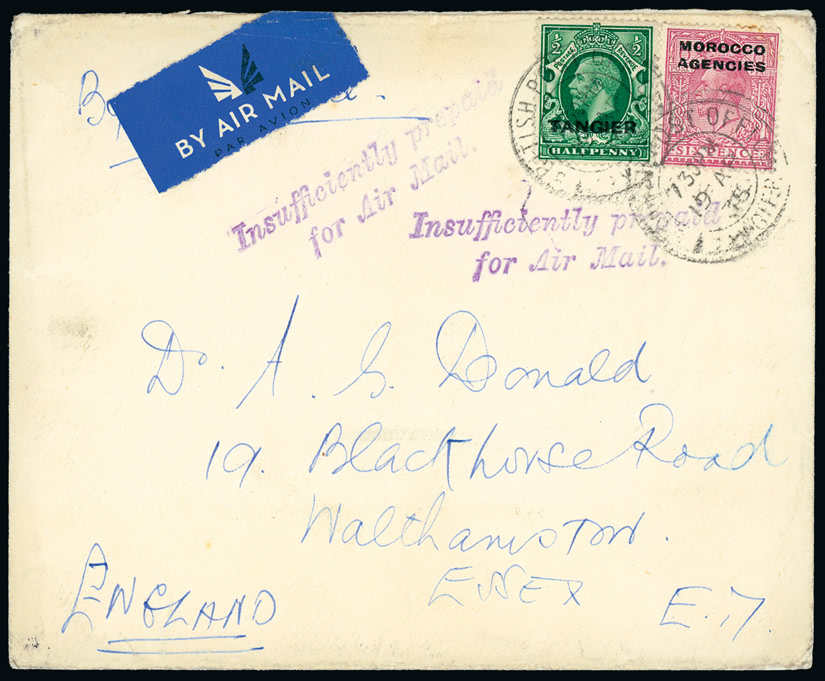 By
BY AIR MAIL
PAR AVION
½ ½
POSTAGE REVENUE
TANGIER
HALFPENNY
MOROCCO
AGENCIES
SIXPENCE
BRITISH POST OFFICE
13 JUN
35
TANGIER
Insufficiently prepaid
for Air Mail.
Insufficiently prepaid
for Air Mail.
Dr. A. S. Donald
19. Blackhorse Road
Walthamstow.
ESSEX
ENGLAND
E.17.